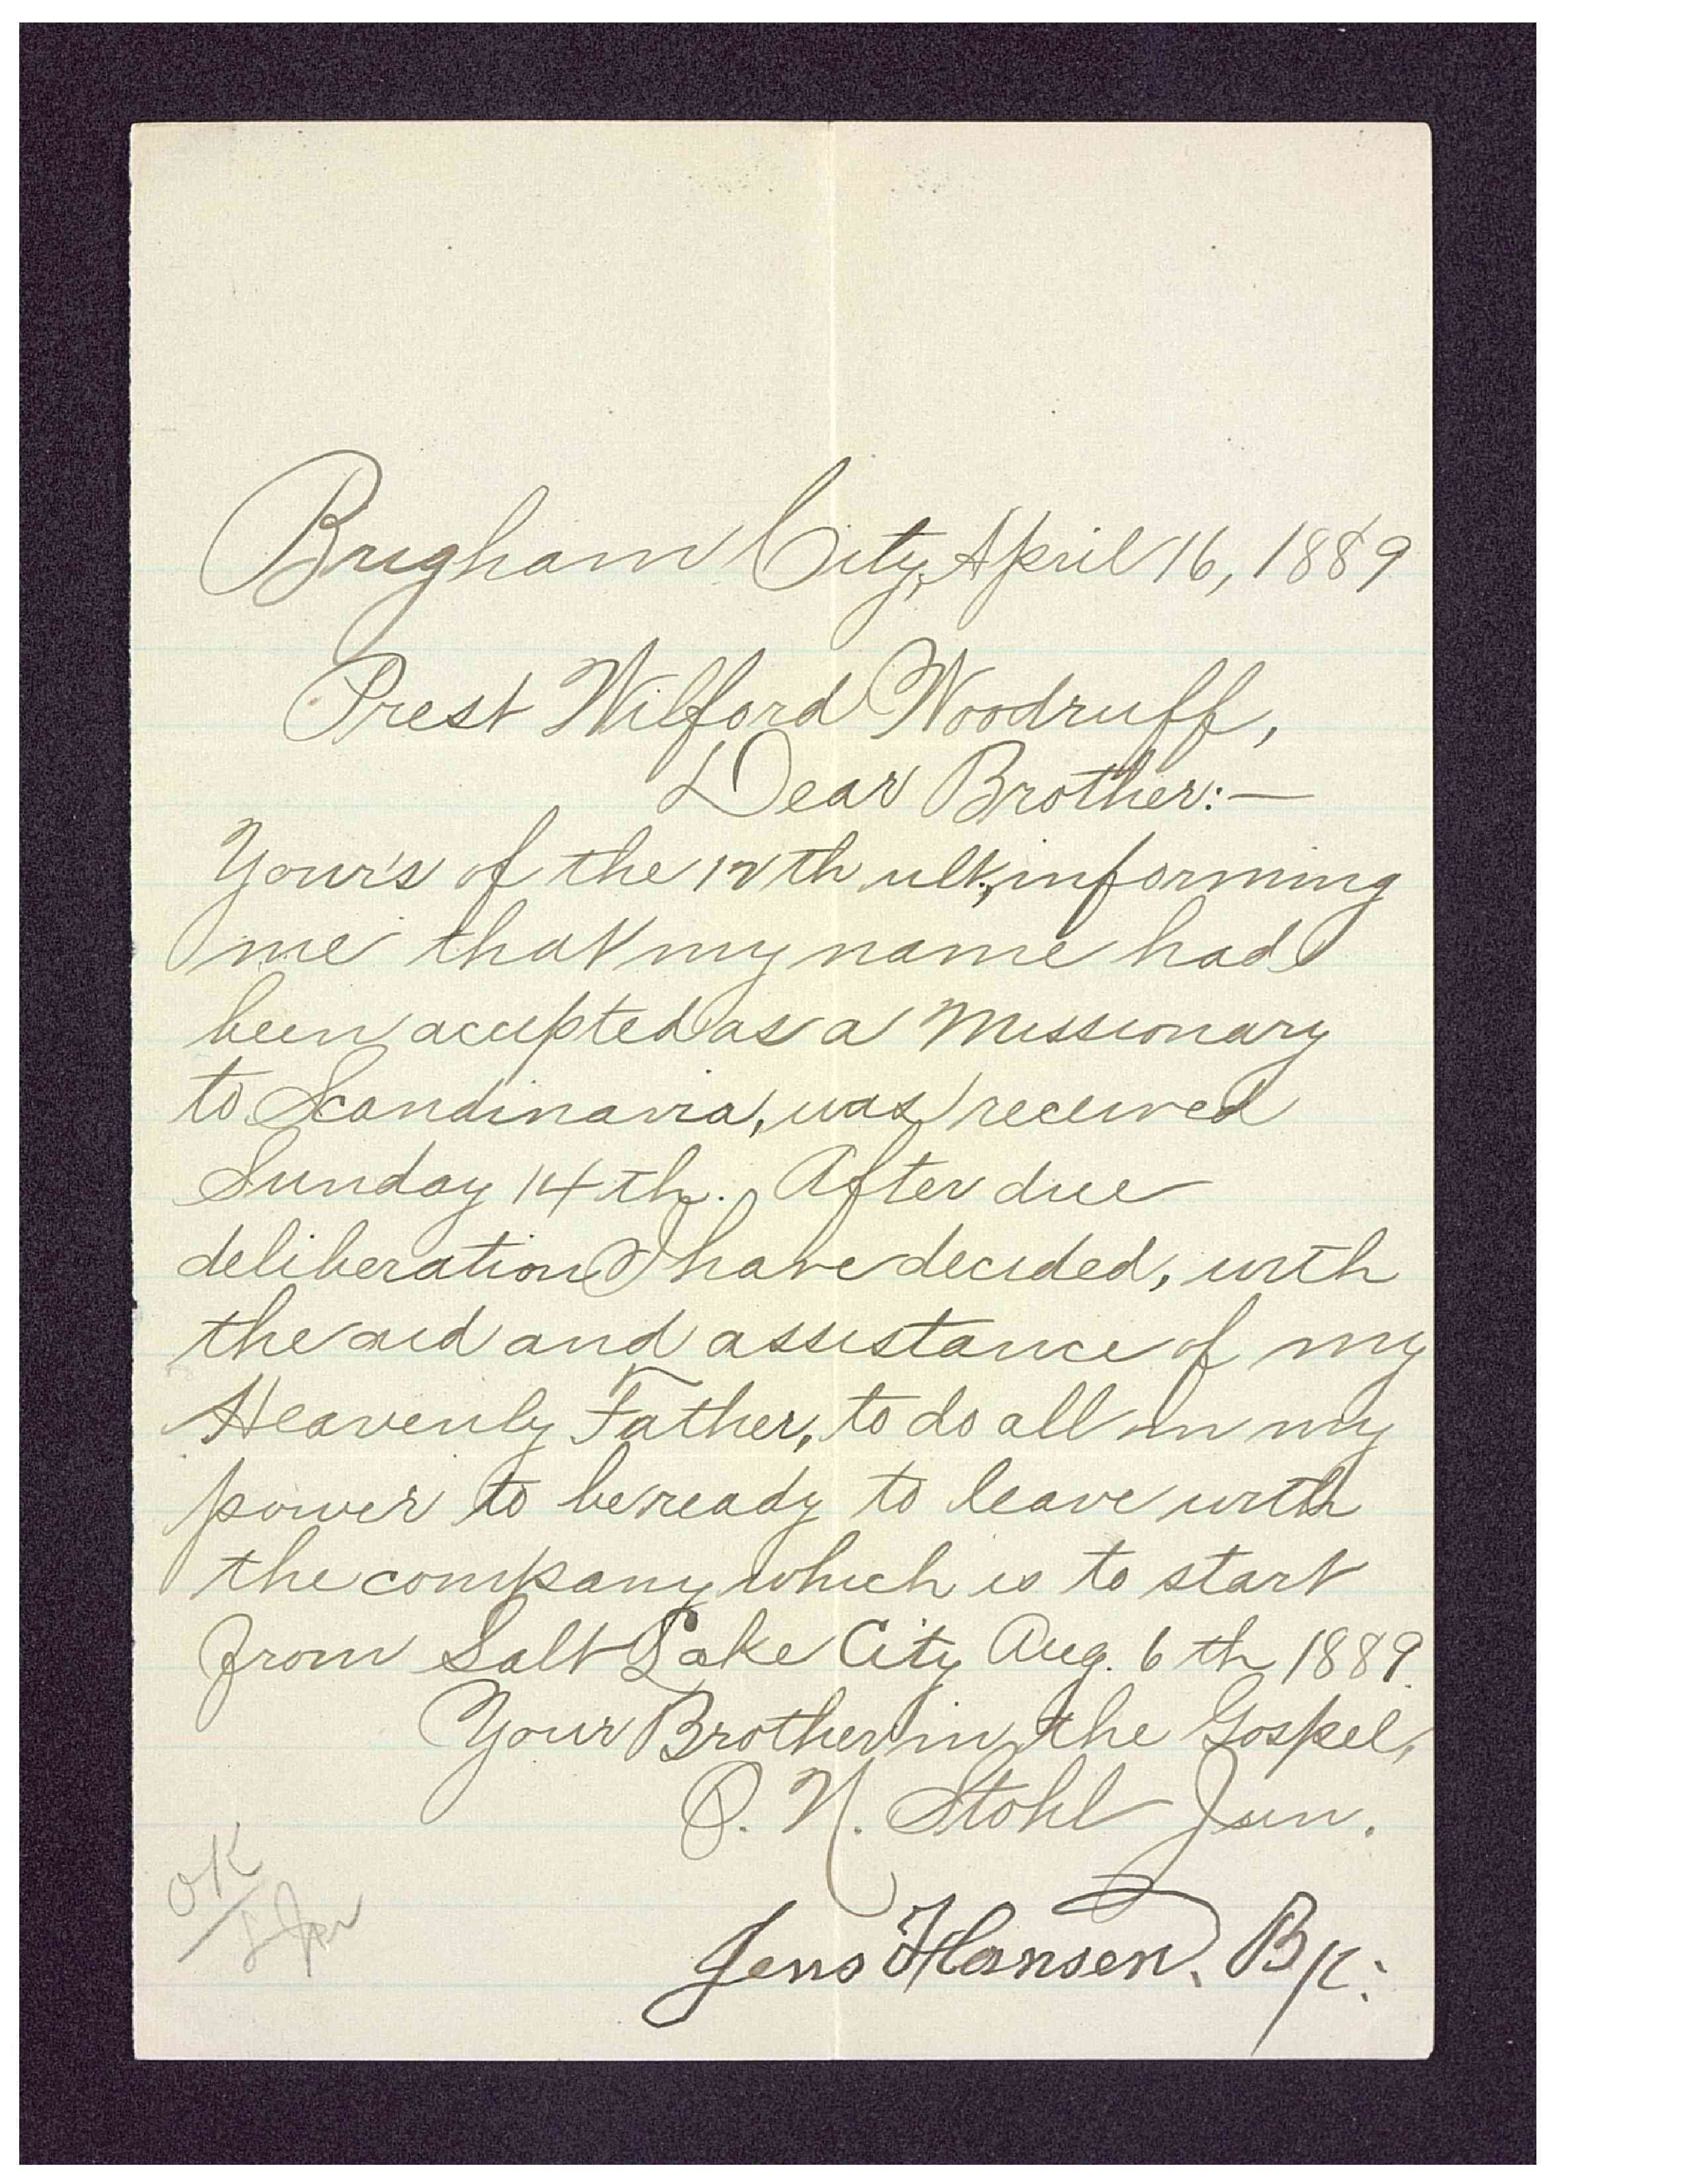 Brigham City, April 16, 1889
Prest Wilford Woodruff,
Dear Brother:—
Your's of the 12th ult., informing
me that my name had
been accepted as a Missionary
to Scandinavia, was received
Sunday 14th. After due
deliberation I have decided, with
the aid and assistance of my
Heavenly Father, to do all in my
power to be ready to leave with
the company which is to start
from Salt Lake City Aug. 6th 1889.
Your Brother in the Gospel,
O. N. Stohl Jun.
OK
Jens Hansen. Bp: